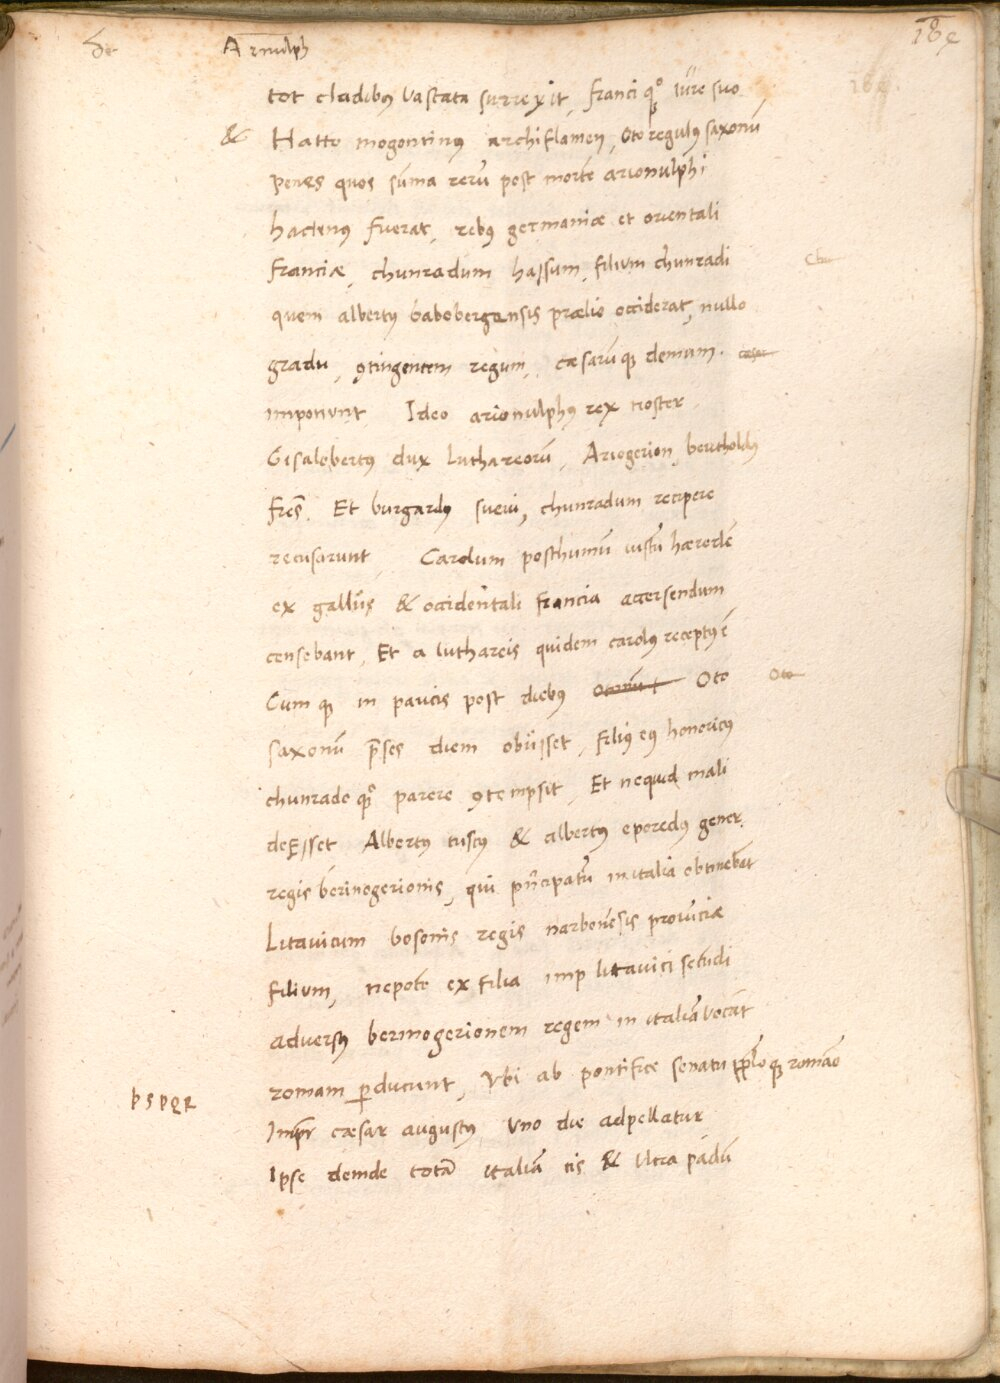 Arnulph
tot cladibus vastata surrexit, franci qȝ iure suo
& Hatto mogontinus archiflamen, Oto regulus saxonū
penes quos sūma rerū post mortē arionulphi
hactenus fuerat, rebus germaniæ et orientali
franciæ, chunradum hassum, filium chunradi
quem albertus babobergensis prælio occiderat, nullo
gradu, ꝯtingentem regum, cæsarū qȝ demum. cæsar
imponunt Ideo arionulphus rex noster
Gisalobertus dux luthareorū, Ariogerion, bertholdus
frēs. Et burgardus suevi, chunradum recipere
recusarunt, Carolum posthumū iustū hæredē
ex galliis & occidentali francia accersendum
censebant, Et a luthareis quidem carolus receptus ē
Cum qȝ in paucis post diebus Oto Oto
saxonū p̄ses diem obiisset, filius eius honoricus
chunrado qȝ parere ꝯtempsit, Et nequid mali
deesset Albertus tuscus & albertus eporedus gener
regis berinogerionis, qui pn̄cipatū in italia obtinebāt
Litavicum bosonis regis narbonēsis provīciæ
filium, nepotē ex filia imp litavici secūdi
adversus berinogerionem regem in italiā vocāt
romam ꝑducunt, Vbi ab pontifice senatu pp̄lo qȝ romāo
PSPQR
Impr̄ cæsar augustus, Vno die adpellatur
Ipse deinde totā italiā cis & vltra padū